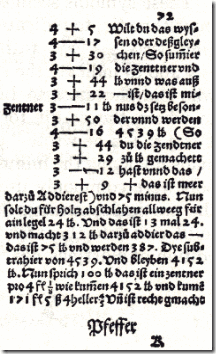 92
4 + 5 Wilt du das wys⸗
4 — 17 sen oder deßgley⸗
3 + 30 chen/ So sumier
4 — 19 die zentner vnd
3 + 44 lb vnnd was auß
3 + 22 — ist/ das ist mi⸗
zentner 3 — 11 lb nus dz setz beson⸗
3 + 50 der vnnd werden
4 — 16 4539 lb (So
3 + 44 du die zendtner
3 + 29 zů lb gemachett
3 — 12 hast vnnd das /
3 + 9 + das ist meer
darzů Addierest) vnd 75 minus. Nun
solt du für holtz abschlahen allweeg für
ain legel 24 lb. Vnd das ist 13 mal 24.
vnd macht 312 lb darzů addier das —
das ist 75 lb vnd werden 387. Dye sub⸗
trahier von 4539. Vnd bleyben 4152
lb. Nun sprich 100 lb das ist ein zentner
pro 4 fl ⅛ wie kumen 4152 lb vnd kumē
171 fl 5 ß 4 heller Vñ ist recht gmacht
Pfeffer